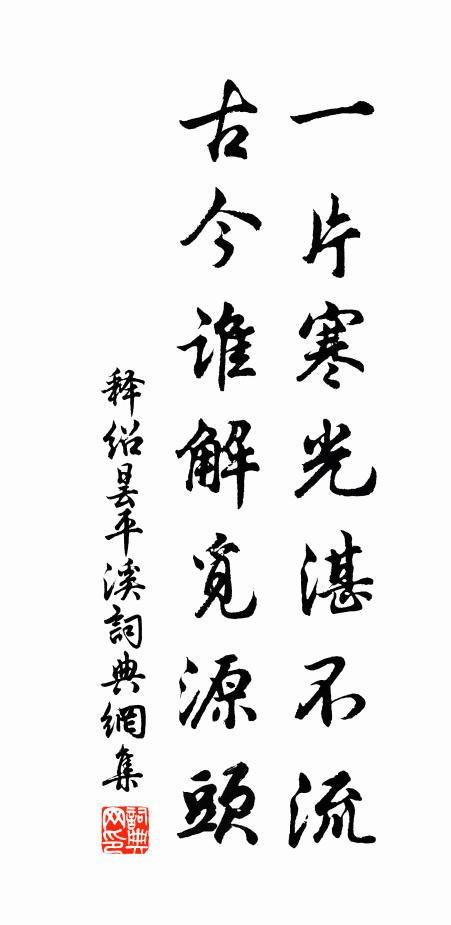 一片寒光湛不流
古今谁解覓源頭
释绍曇平溪詞典網集
詞典网印